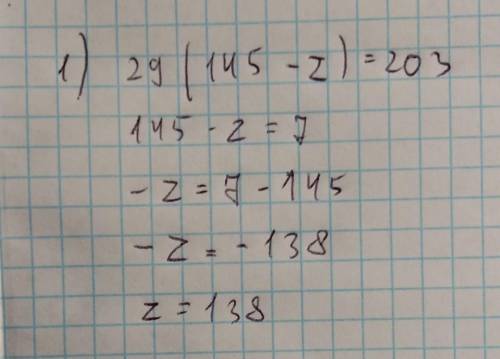 1) 29(145 - z) = 203
145 - z = 7
- z = 7 - 145
- z = - 138
z = 138